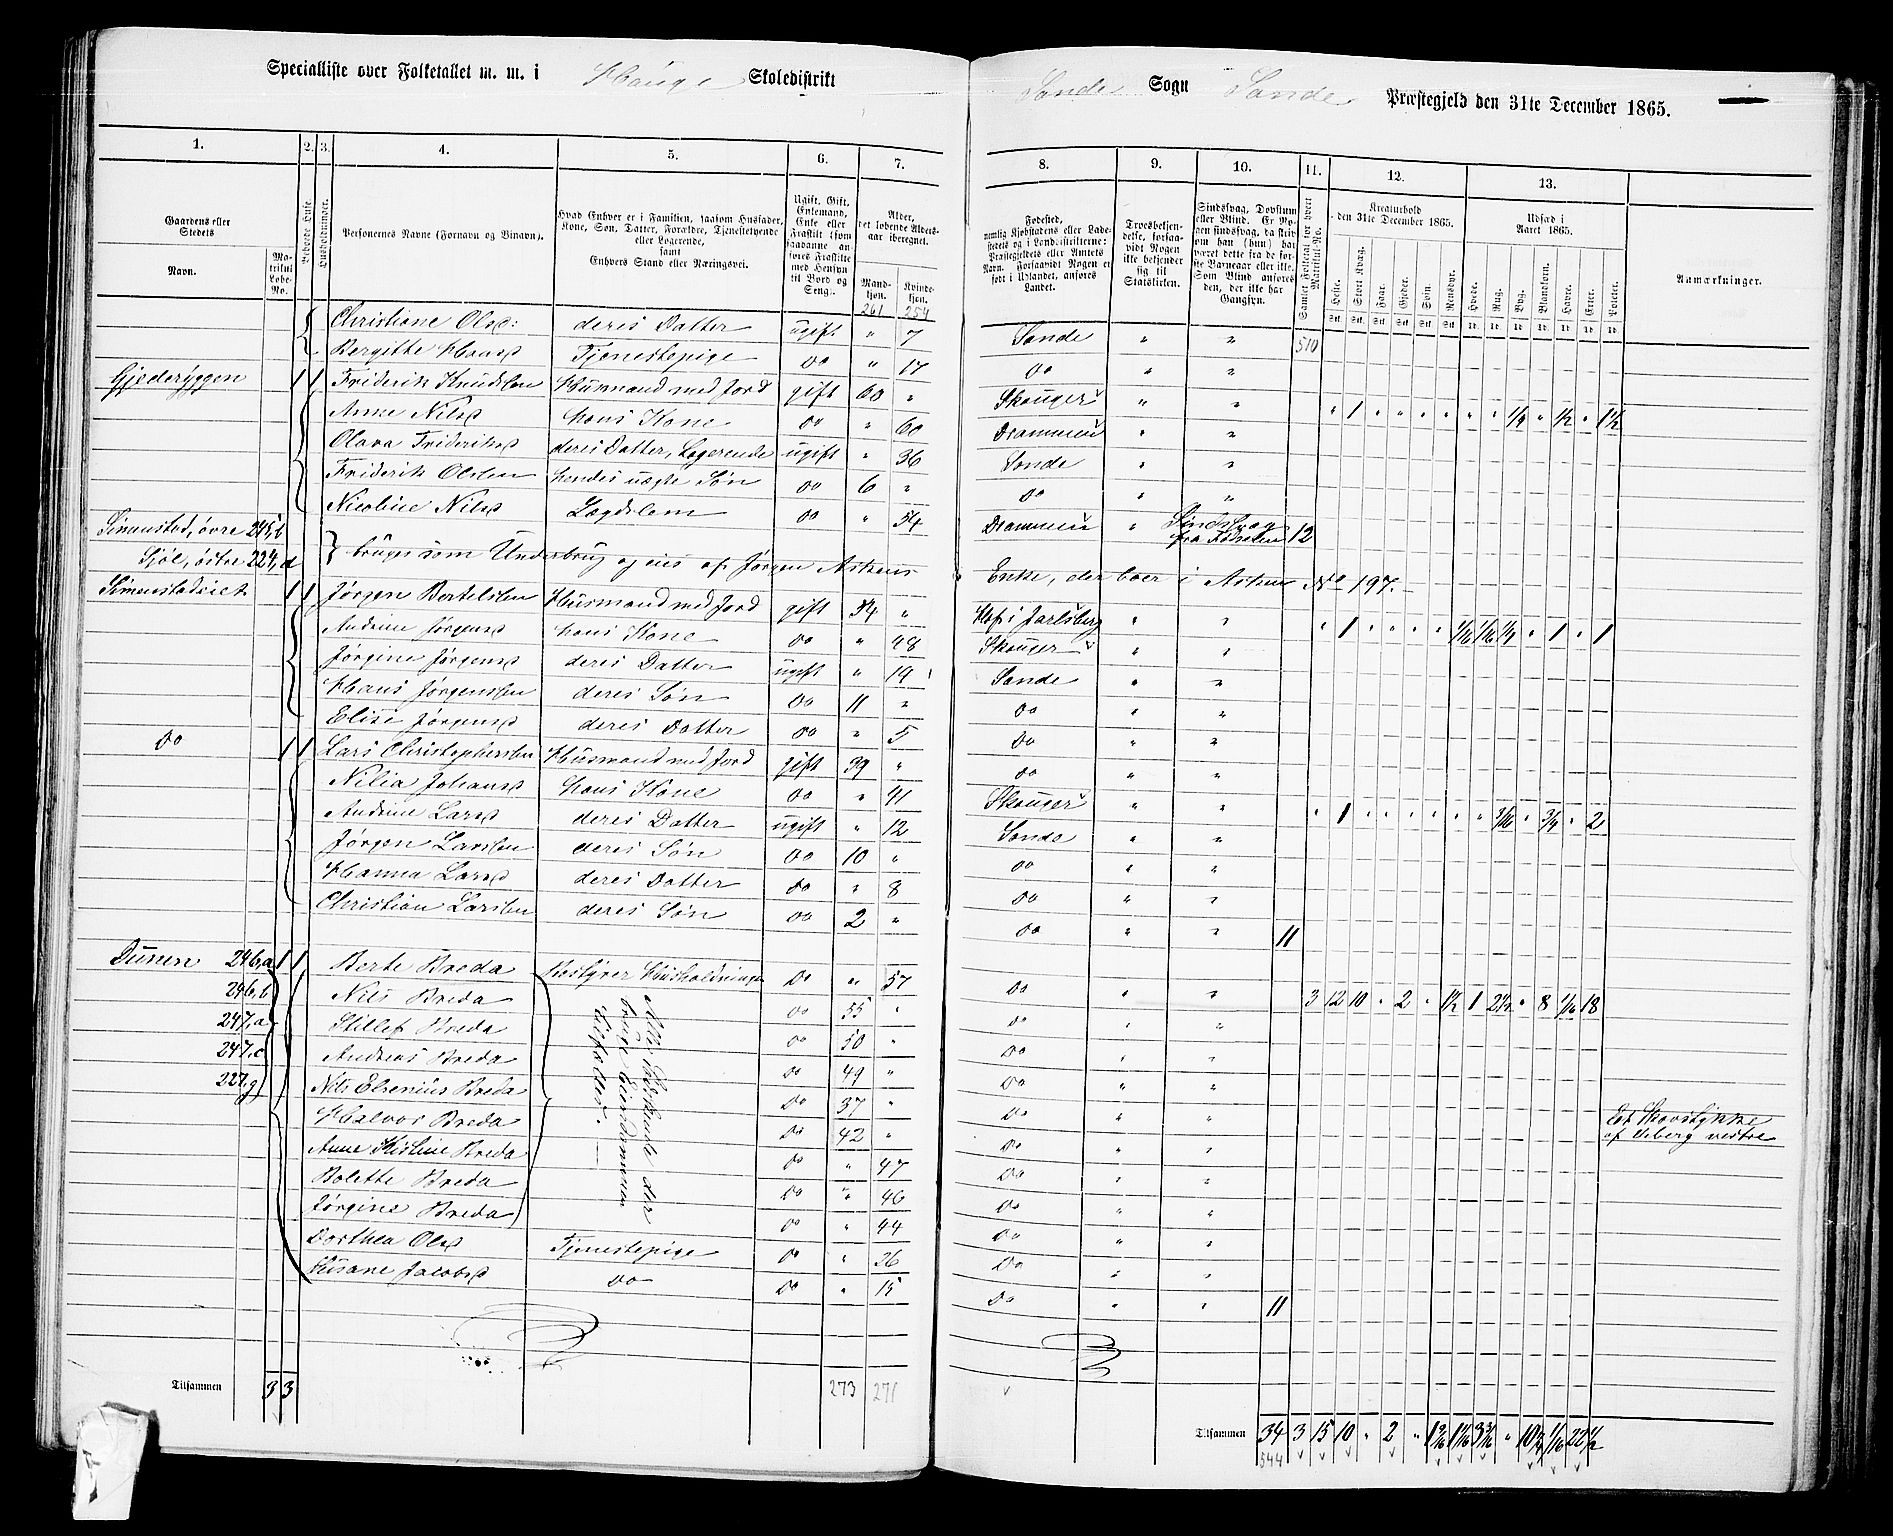 Specialliste over Folketallet m. m. i Hauge Skoledistrikt Sande Sogn Sande Præstegjeld den 31te December 1865.
1. 2. 3. 4. 5. 6. 7. 8. 9. 10. 11. 12. 13.
Gaardens eller Stedets
Navn.
Matrikul Løbe-No.
Beboede Huse.
Huusholdninger.
Personernes Navne (Fornavn og Binavn).
Hvad Enhver er i Familien, saasom Husfader, Kone, Søn, Datter, Forældre, Tjenestetyende eller Logerende, samt Enhvers Stand eller Næringsvei.
Ugift. Gift. Enkemand, Enke eller Fraskilt (som saadanne anføres Fraskilte med Hensyn til Bord og Seng).
Alder, det løbende Alders-aar iberegnet.
Mand-kjøn.
Kvinde-kjøn.
Fødested,
Troesbekjendelse, forsaavidt Nogen ikke bekjender sig til Statskirken.
Samlet Folketal for hvert Matrikul-No.
Kreaturhold den 31te December 1865.
Udsæd i Aaret 1865.
Anmærkninger.
Heste. Stort Kvæg. Faar. Gjeder. Svin. Rensdyr. Hvede. Rug. Byg. Blandkorn. Havre. Erter. Poteter.
261 254
Christiane Olsd: deres Datter ugift " 7 Sande " " 510
Bergitte Hansd Tjenestepige do " 17 do " "
Gjederyggen 1 1 Friderik Knudsen Husmand med Jord gift 60 " Skouger " " " 1 " " " " " " 1/4 " 1/2 " 1 1/2
Anne Nilsd hans Kone do " 60 Drammen " "
Olava Frideriksd deres Datter, Logerende ugift " 36 Sande " "
Friderik Olssen hendes uægte Søn do 6 " do " "
Nicoline Nilsd Lægdslem do " 54 Drammen " Sindssvag fra Fødselen 12
Simenstad, øvre 245,b
Sjøl, østre 224,d } bruges som Underbrug og eies af Jørgen Askens Enke, der boer i Asken No 197.
Simenstadeiet 1 1 Jørgen Bertelsen Husmand med Jord gift 54 " Hof i Jarlsberg " " " 1 " " " " 1/16 1/16 1/4 " 1 " 1
Andrine Jørgensd hans Kone do " 48 Skouger " "
Jørgine Jørgensd deres Datter ugift " 19 Sande " "
Hans Jørgensen deres Søn do 11 " do " "
Elise Jørgensd deres Datter do " 5 do " "
do 1 1 Lars Christophersen Husmand med Jord gift 39 " do " "
Nilia Johansd hans Kone do " 41 Skouger " " " 1 " " " " " 3/16 " 3/4 " 2
Andrine Larsd deres Datter ugift " 12 Sande " "
Jørgen Larssen deres Søn do 10 " do " "
Hanna Larsd deres Datter do " 8 do " "
Christian Larssen deres Søn do 2 " do " " 11
Dunen 246,a 1 1 Berte Breda Bestyrer Husholdningen do " 57 do " " 3 12 10 " 2 " 1 1/2 1 2 1/2 " 8 1/16 18
246,b Nils Breda do 55 " do " "
247,a Stillef Breda do 50 " do " "
247,c Andreas Breda do 49 " do " "
227,g Nils Elsenius Breda do 37 " do " " Et Skovstykke af Viberg vestre
Halvor Breda do 42 " do " "
Anne Kistine Breda do " 47 do " "
Bolette Breda do " 46 do " "
Jørgine Breda do " 44 do " "
Alle Søskende der bruge Eiendommen
Dorthea Olsd Tjenestepige do " 36 do " "
Susane Jacobsd do do " 15 do " " 11
Tilsammen 3 3 273 271
Tilsammen 34 3 15 10 " 2 "
544